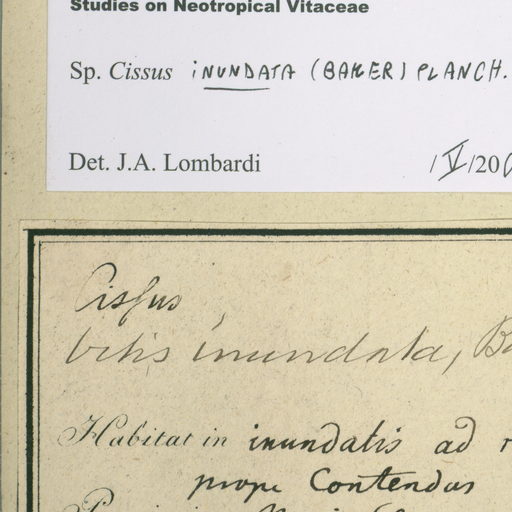 Studies on Neotropical Vitaceae
Sp. Cissus inundata (BAKER) PLANCH.
Det. J.A. Lombardi /V/20
Cissus
Vitis inundata,
Habitat in inundatis ad
prope Contendas